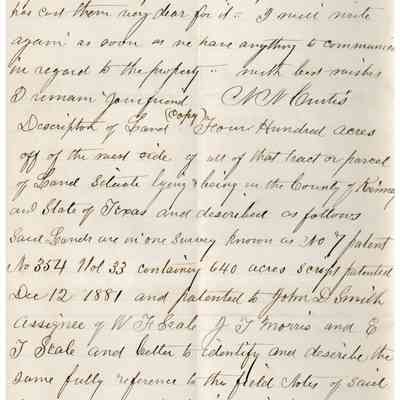 has cost them very dear for it. I will write
again as soon as we have anything to communica
in regard to the property. with best wishes
I remain your friend N N Curtis
(Copy)
Description of Land Four Hundred acres
off of the west side of all of that tract or parcel
of Land Situate lying & being in the County of Kinney
and State of Texas and described as follows
Said Lands are in one survey known as No 7 patent
No 354 Vol 33 containing 640 acres script patented
Dec 12 1881 and patented to John D Smith
Assignee of W F Scale J T Morris and E
T Scale and better to identify and describe the
same fully reference to the field Notes of said